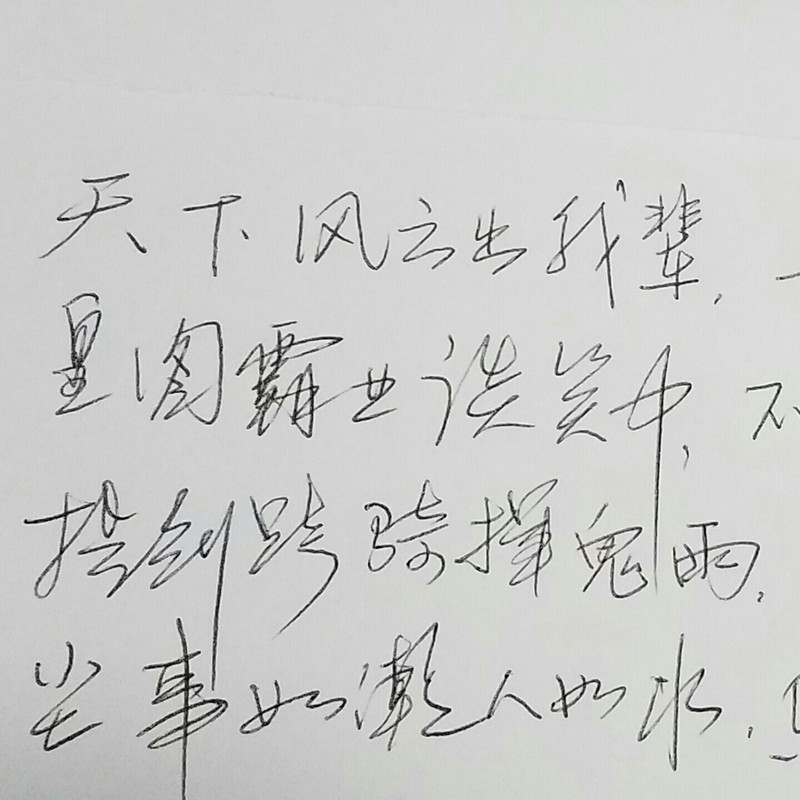 天下风云出我辈,
皇图霸业谈笑中,不
提剑跨骑挥鬼雨,
尘事如潮人如水,